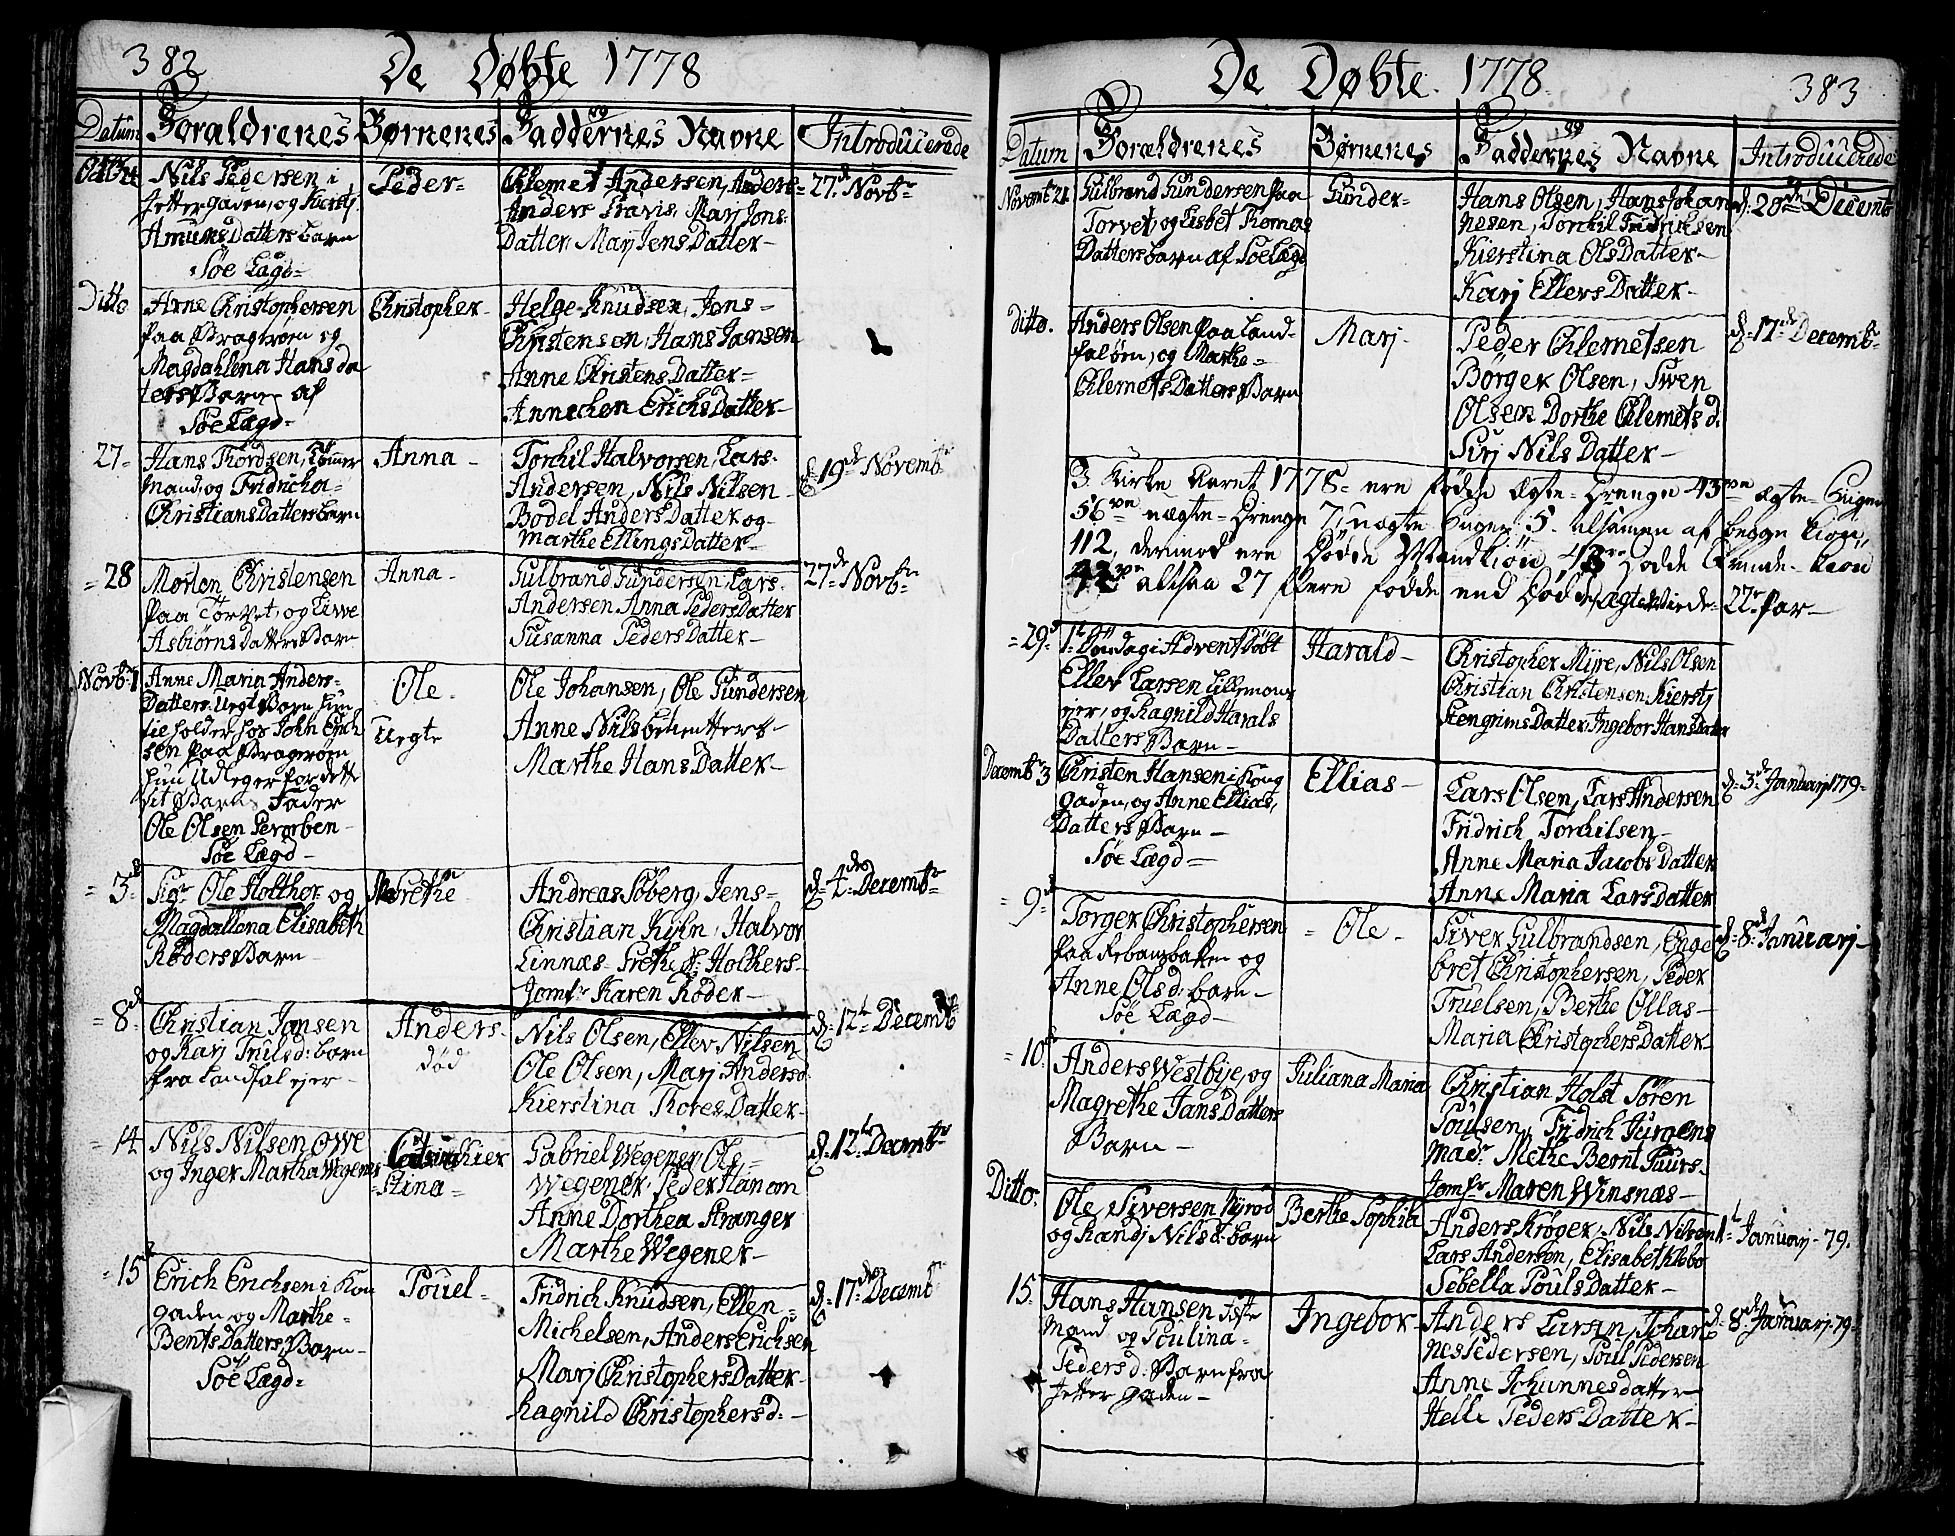 382
De Døbte 1778
Datum Forældrenes Børnenes Faddernes Navne Introducerede
Nils Pedersen i
gaden, og Kiersti
Amunds Datters barn
Søe Lægd
Peder
Clemet Andersen, Anders
Anders Travis, Marj Jons
Datter, Marj Jens Datter
27de Novbr
Ditto
Arne Christophersen
paa Bragerøen og
Magdahlena Hans da
ters Barn af
Søe Lægd
Christopher
Helge Knudsen, Jens
Christensen, Hans Jansen
Anne Christens Datter
Annechen Erichs Datter
27
Hans Thordsen, Tømmer
mand, og Fridricha
Christians Datters barn
Anna
Torchil Halvorsen, Lars
Andersen, Nils Nilsen
Bodel Anders Datter og
Marthe Ellings Datter
d. 19de Novembr
28
Morten Christensen
paa Torvet, og Live
Asbiørns Datters Barn
Anna
Gulbrand Gundersen, Lars
Andersen, Anna Peders Datter
Susanna Peders Datter
27de Novbr
Novbr 1
Anne Maria Anders
Datters Uegt Barn hun
tilholder hos John Erich
sen paa Bragerøen
hun Udleger for dette
sit Barns Fader
Ole Olsen Perorben
Søe Lægd
Ole
Uegte
Ole Johansen, Ole Gundersen
Anne Nils
Marthe Hans Datter
3d
Sigr Ole Holther og
Magdallena Elisabeth
Røders Barn
Grethe
Andreas Søberg, Jens
Christian Kyhn, Halvor
Linnæs Grethe S. Holthers
Jomfr Karen Røder
d. 4de Decembr
8d
Christian Jansen
og Karj Truls d. barn
fra Landfal ejer
Anders
død
Nils Olsen, Ellev Nilsen
Ole Olsen, Marj Anders d.
Kierstina Thores Datter
d. 12te Decembr
14
Nils Nilsen Owe
og Inger Martha Wegeners
stina
Gabriel Wegener, Ole
Wegener, Peder Hanom
Anne Dorthea Stranger
Marthe Wegener
d. 12te Decembr
15d
Erich Erichsen i Kon
gaden og Marthe
Bents Datters Barn
Søe Lægd
Pouel
Fridrich Knudsen, Ellen
Michelsen, Anders Erichsen
Marj Christophers Datter
Ragnild Christophers d.
d. 17de Decemb
De Døbte 1778
383
Datum Forældrenes Børnenes Faddernes Navne Introducerede
Novembr 21
Gulbrand Gundersen paa
Torvet, og Lisbet Thomas
Datters barn af Søe Lægd
Gunder
Hans Olsen, Hans Johan
nesen, Torchil Fridrichsen
Kierstina Ols Datter
Karj Ellers Datter
d. 20de Decemb
ditto.
Anders Olsen paa Land
faløen, og Marthe
Clemets Datters Barn
Marj
Peder Clemetsen
Børger Olsen, Swen
Olsen Dorthe Clemets d.
Sirj Nils Datter
d. 17de Decembr
I Kirke Aaret 1778 ere fødde Ægte Drenge 43 ægte
56 uægte Drenge 7, uægte 5. alsamen af begge Kiøn,
112, derimod ere Døde Mandkiøn 43 Døde Kiøn
42 altsaa 27 flere fødde end Døde, ægteviede 22 Par
29d
1te Søndag i Advent Døbt
Ellev Larsen
ejer, og Ragnild Harals
Datters Barn
Harald
Christopher Myre, Nils Olsen
Christian Christensen, Kiersti
Stengrims Datter, Ingebor Hans Datter
Decembr 3
Christen Hansen i Kong
gaden, og Anne Ellias
Datters Barn
Søe Lægd
Ellias
Lars Olsen, Lars Andersen
Fridrich Torchilsen
Anne Maria Jacobs Datter
Anne Maria Lars datter
d. 3d Januarj 1779
9d
Torger Christophersen
paa og
Anne Ols d. barn
Søe Lægd
Ole
Siver Gulbrandsen, Enge
bret Christophersen, Peder
Truelsen, Berthe Ollas
Maria Christophers Datter
d. 8d Januarj
10d
Anders Westbye, og
Magrethe Jans Datters
Barn
Juliana Maria
Christian Holst Sören
Poulsen, Fridrich Jurgens
Madr Methe Bernt Tuurs
Jomfr Maren Winsnæs
Ditto
Ole Siversen
og Randj Nils d. barn
Berthe Sophia
Anders Krøger, Nils Nilsen
Lars Andersen, Elisabet
Sebella Pouls Datter
1t Januarj 79.
15
Hans Hansen
Mand og Poulina
Peders d. Barn fra
gaden
Ingebor
Anders Larsen, Johan
nes Pedersen, Poul Pedersen
Anne Johannes datter
Helle Peders Datter
d. 8de Januarj 79